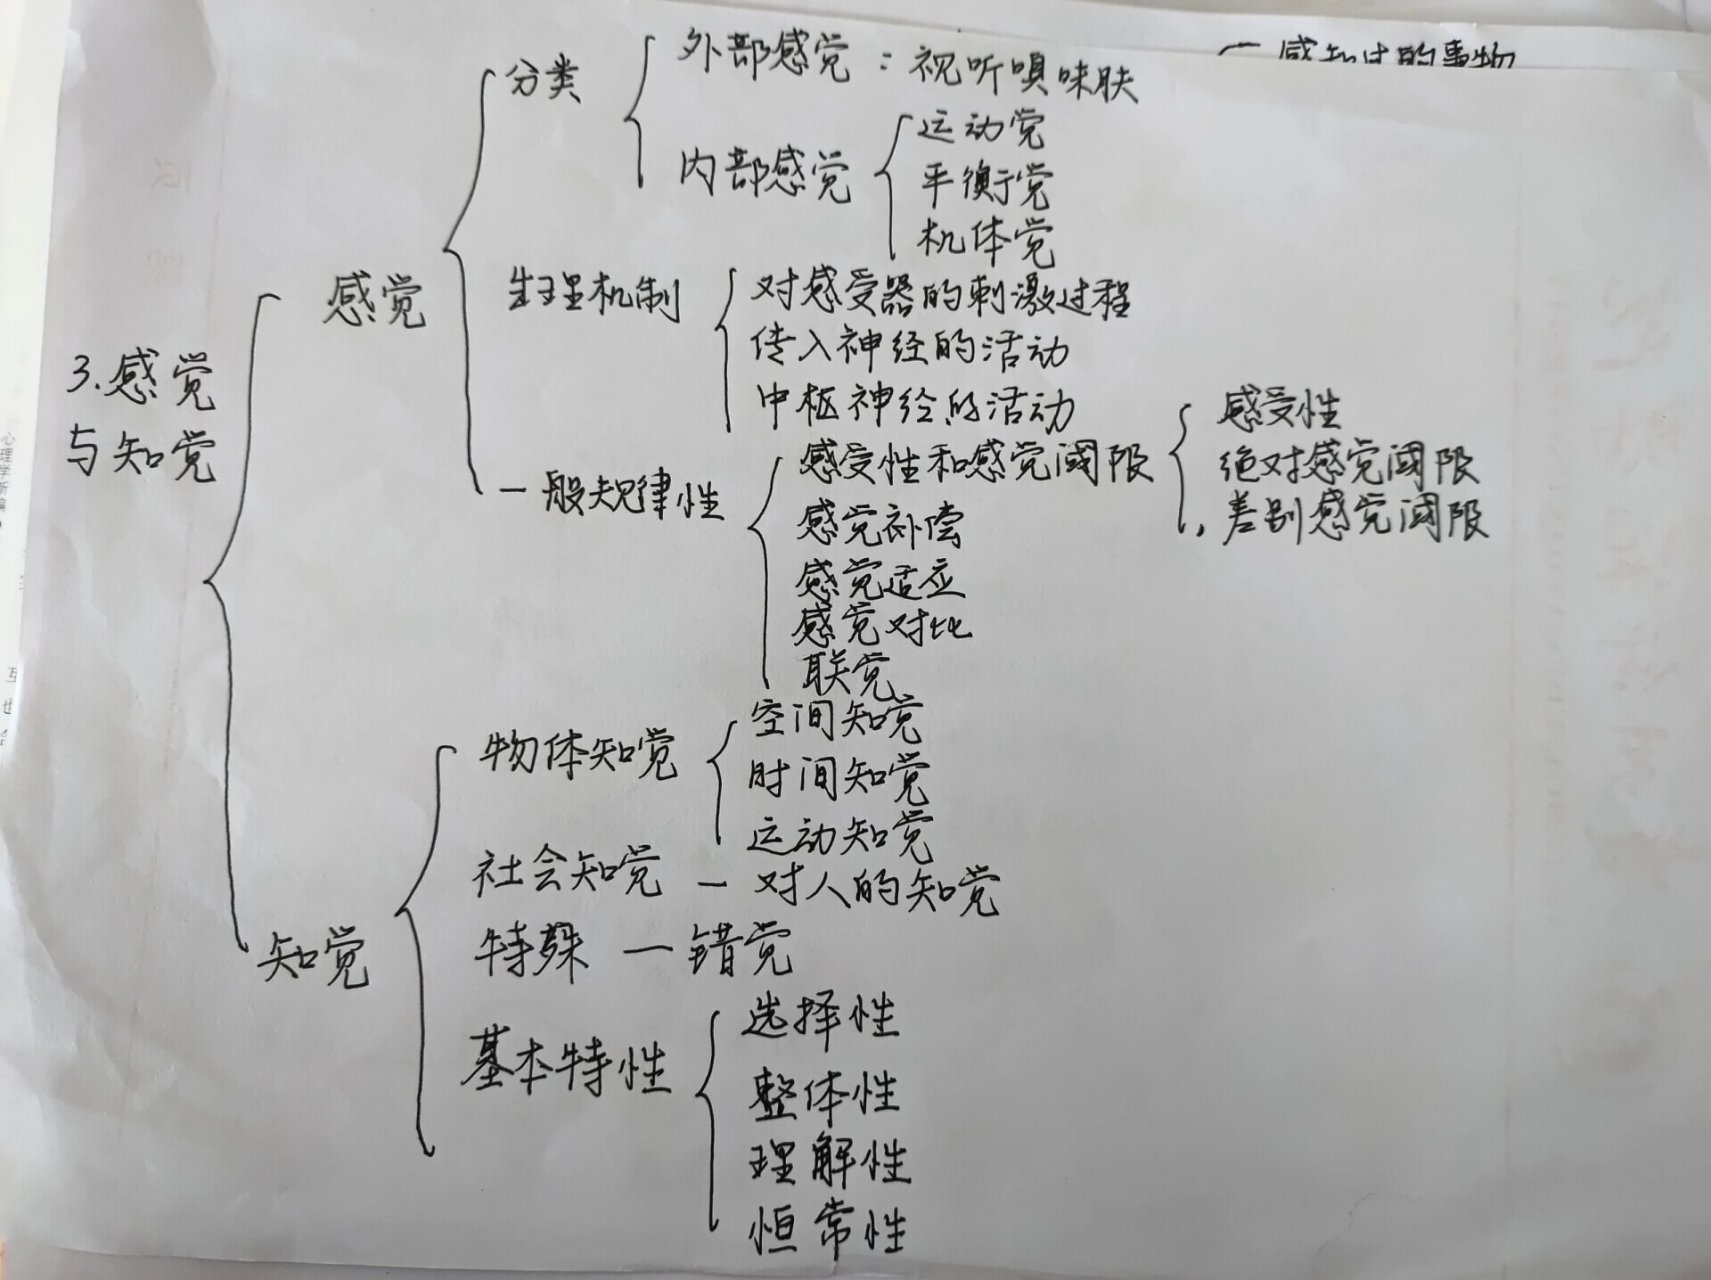 感知过的事物
分类
外部感觉：视听嗅味肤
内部感觉
运动觉
平衡觉
机体觉
感觉
生理机制
对感受器的刺激过程
传入神经的活动
中枢神经的活动
3.感觉
与知觉
一般规律性
感受性和感觉阈限
感受性
绝对感觉阈限
差别感觉阈限
感觉补偿
感觉适应
感觉对比
联觉
物体知觉
空间知觉
时间知觉
运动知觉
社会知觉 — 对人的知觉
知觉
特殊 — 错觉
基本特性
选择性
整体性
理解性
恒常性
心理学新编
互
也